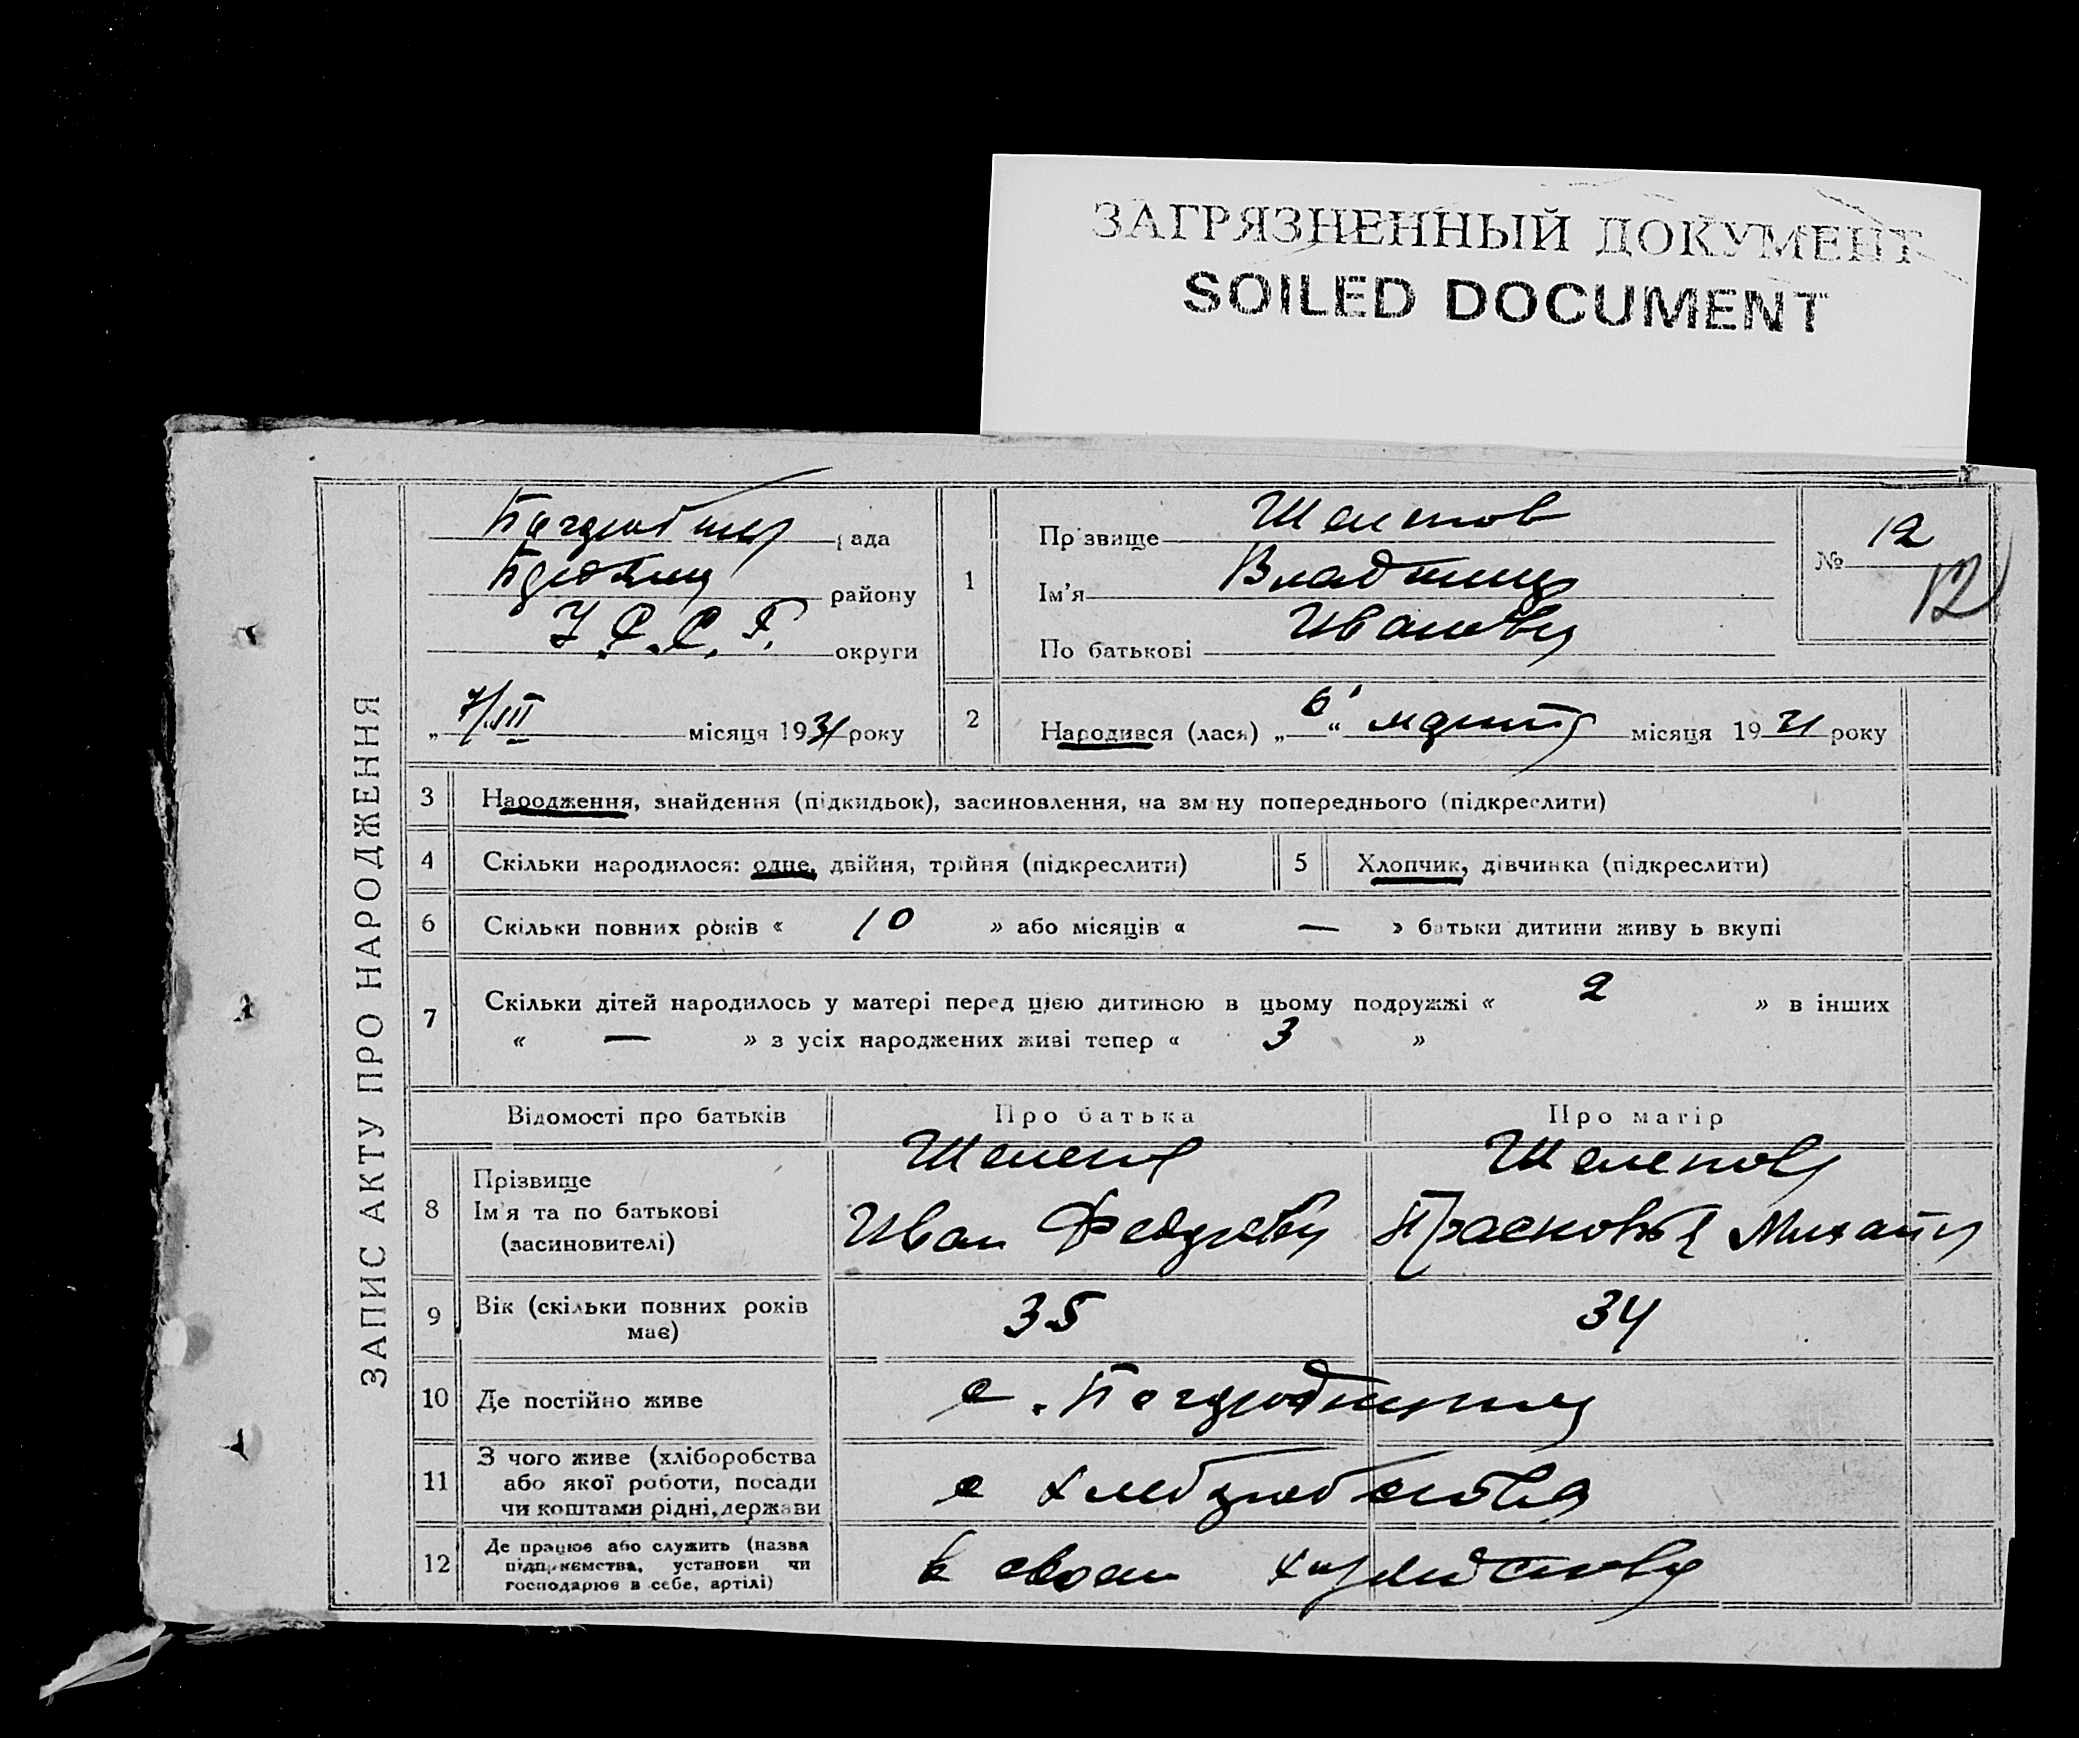 ЗАГРЯЗНЕННЫЙ ДОКУМЕНТ
SOILED DOCUMENT
ЗАПИС АКТУ ПРО НАРОДЖЕННЯ
рада
району
У.С.С.Р.
округи
„ 7/III місяця 1931 року
1
Прізвище Шелепов
Ім'я Владимир
По батькові Иванов
№ 12
12
2
Народився (лася) „ 6 “ марта місяця 1931 року
3 Народження, знайдення (підкидьок), засиновлення, на зміну попереднього (підкреслити)
4 Скільки народилося: одне, двійня, трійня (підкреслити)
5 Хлопчик, дівчинка (підкреслити)
6 Скільки повних років « 10 » або місяців « — » батьки дитини живуть вкупі
7 Скільки дітей народилось у матері перед цією дитиною в цьому подружжі « 2 » в інших
« — » з усіх народжених живі тепер « 3 »
Відомості про батьків Про батька Про матір
8 Прізвище
Ім'я та по батькові
(засиновителі)
Шелепов
Иван Федоров
Шелепова
Прасковья Михайл
9 Вік (скільки повних років
має)
35 34
10 Де постійно живе
с.
11 З чого живе (хліборобства
або якої роботи, посади
чи коштами рідні, держави
с хлеборобства
12 Де працює або служить (назва
підприємства, установи чи
господарює в себе, артілі)
в своем